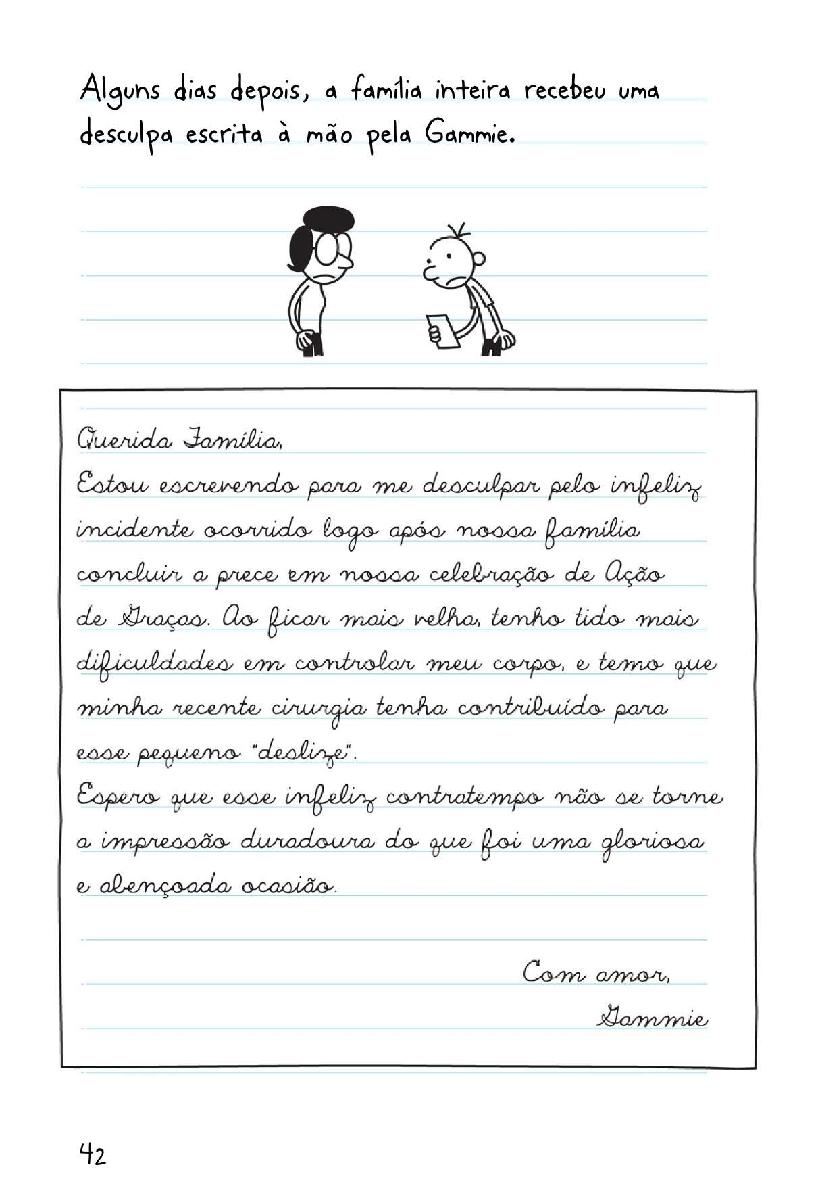 Alguns dias depois, a família inteira recebeu uma
desculpa escrita à mão pela Gammie.
Querida Família,
Estou escrevendo para me desculpar pelo infeliz
incidente ocorrido logo após nossa família
concluir a prece em nossa celebração de Ação
de Graças. Ao ficar mais velha, tenho tido mais
dificuldades em controlar meu corpo, e temo que
minha recente cirurgia tenha contribuído para
esse pequeno "deslize".
Espero que esse infeliz contratempo não se torne
a impressão duradoura do que foi uma gloriosa
e abençoada ocasião.
Com amor,
Gammie
42